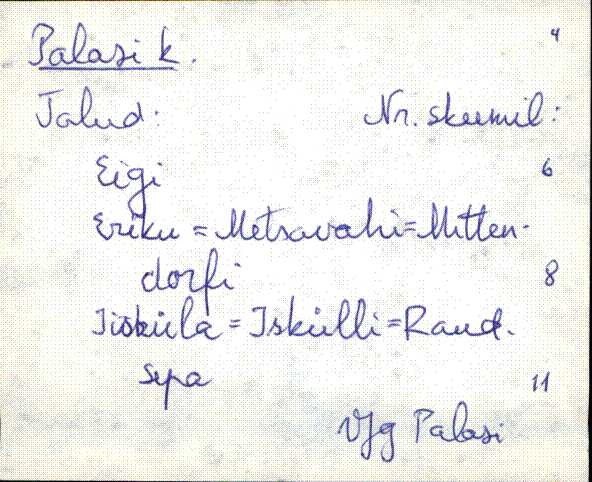 4
Palasi k.
Talud: Nr. skeemil:
Eigi 6
Eriku = Metsavahi = Mitten-
dorfi 8
Iisküla = Iskülli = Raud-
sepa 11
Vjg Palasi